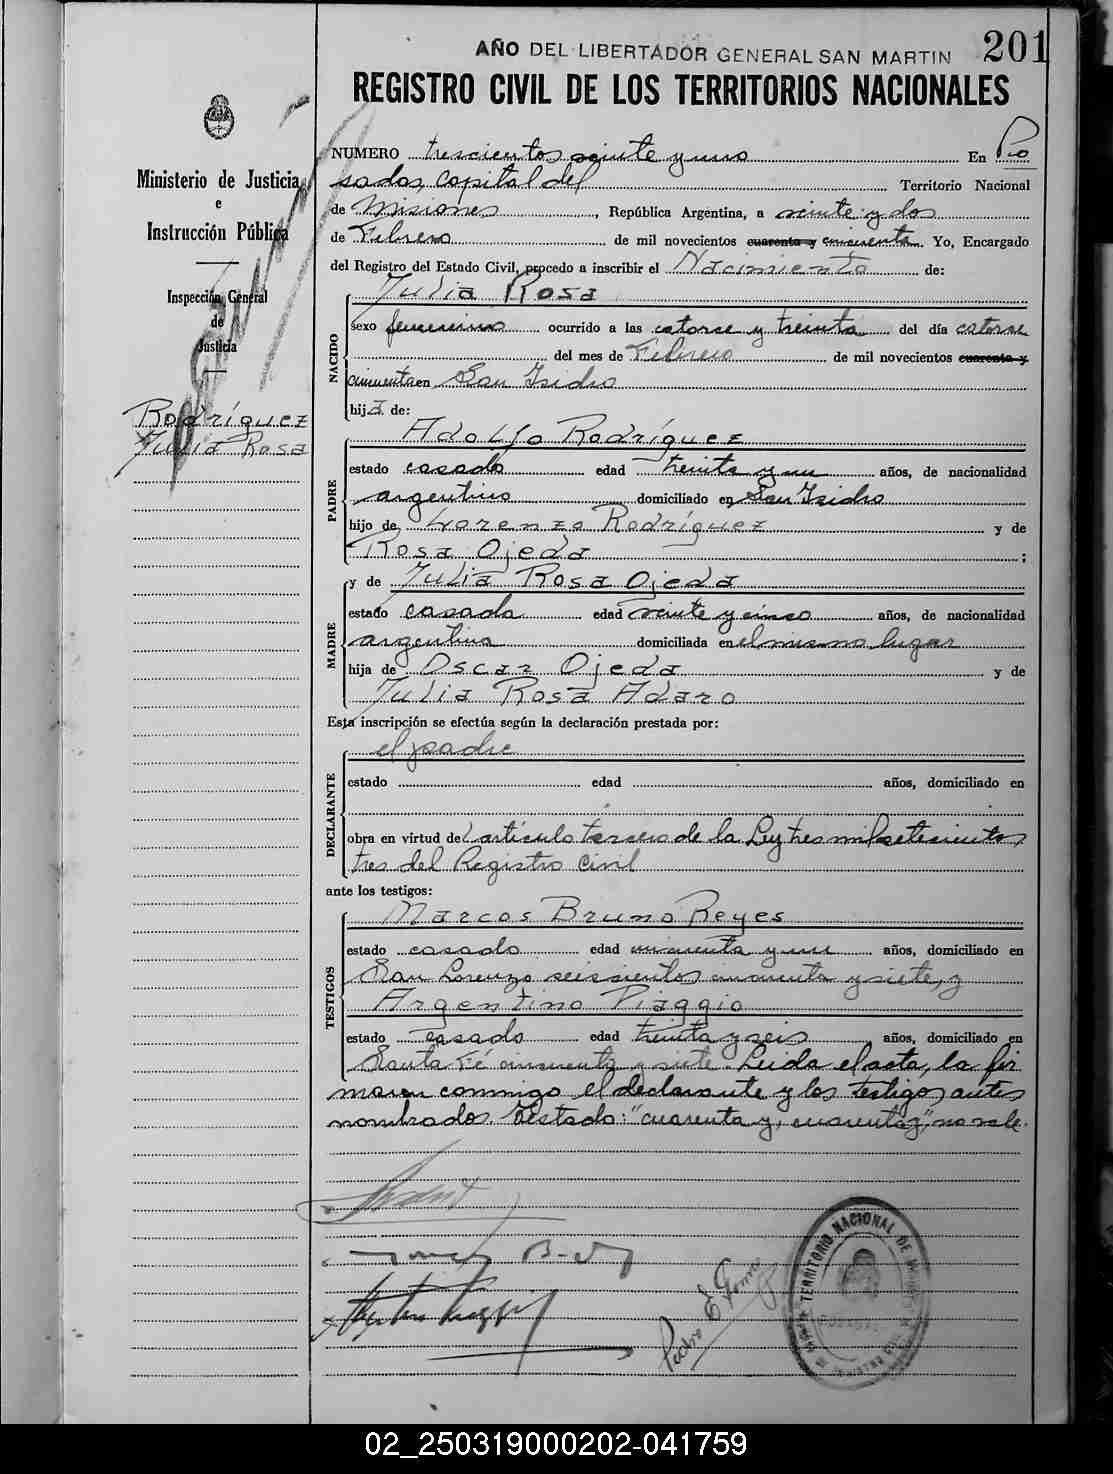 201
AÑO DEL LIBERTADOR GENERAL SAN MARTIN
REGISTRO CIVIL DE LOS TERRITORIOS NACIONALES
Ministerio de Justicia
e
Instrucción Pública
Inspección General
de
Justicia
Rodríguez
Julia Rosa
NUMERO trescientos veinte y uno En Po
sadas, capital del Territorio Nacional
de Misiones, República Argentina, a veinte y dos
de Febrero de mil novecientos cuarenta y cincuenta. Yo, Encargado
del Registro del Estado Civil, procedo a inscribir el Nacimiento de:
Julia Rosa
NACIDO
sexo femenino ocurrido a las catorse y treinta del día catorse
del mes de Febrero de mil novecientos cuarenta y
cincuenta en San Isidro
hija de:
Adolfo Rodríguez
PADRE
estado casado edad treinta y un años, de nacionalidad
argentino domiciliado en San Isidro
hijo de Lorenzo Rodríguez y de
Rosa Ojeda;
y de Julia Rosa Ojeda
MADRE
estado casada edad veinte y cinco años, de nacionalidad
argentina domiciliada en el mismo lugar
hija de Oscar Ojeda y de
Julia Rosa Adaro
Esta inscripción se efectúa según la declaración prestada por:
el padre
DECLARANTE
estado edad años, domiciliado en
obra en virtud del artículo tercero de la Ley tres mil setecientos
tres del Registro Civil
ante los testigos:
Marcos Bruno Reyes
TESTIGOS
estado casado edad cincuenta y un años, domiciliado en
San Lorenzo seiscientos cincuenta y siete, y
Argentino Piaggio
estado casado edad treinta y seis años, domiciliado en
Santa Fé cincuenta y siete. Leida el acta, la fir
maron conmigo el declarante y los testigos antes
nombrados. Testado: "cuarenta y, cuarenta y", no vale.
Pedro E. Gomez
TERRITORIO NACIONAL DE MISIONES
02_250319000202-041759